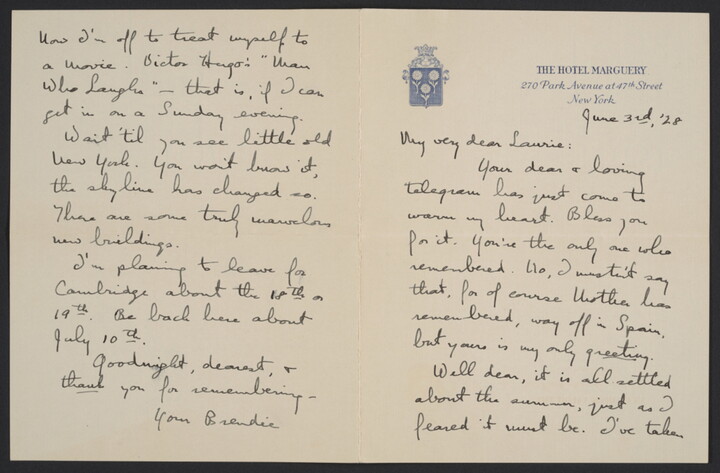 THE HOTEL MARGUERY
270 Park Avenue at 47th Street
New York
June 3rd, '28
My very dear Laurie:
Your dear & loving
telegram has just come to
warm my heart. Bless you
for it. You're the only one who
remembered. No, I mustn't say
that, for of course Mother has
remembered, way off in Spain,
but yours is my only greeting.
Well dear, it is all settled
about the summer, just as I
feared it must be. I've taken
Now I'm off to treat myself to
a movie. Victor Hugo's "Man
Who Laughs" – that is, if I can
get in on a Sunday evening.
Wait 'til you see little old
New York. You won't know it,
the skyline has changed so.
There are some truly marvelous
new buildings.
I'm planing to leave for
Cambridge about the 18th or
19th. Be back here about
July 10th.
Goodnight, dearest, &
thank you for remembering –
Your Brendie